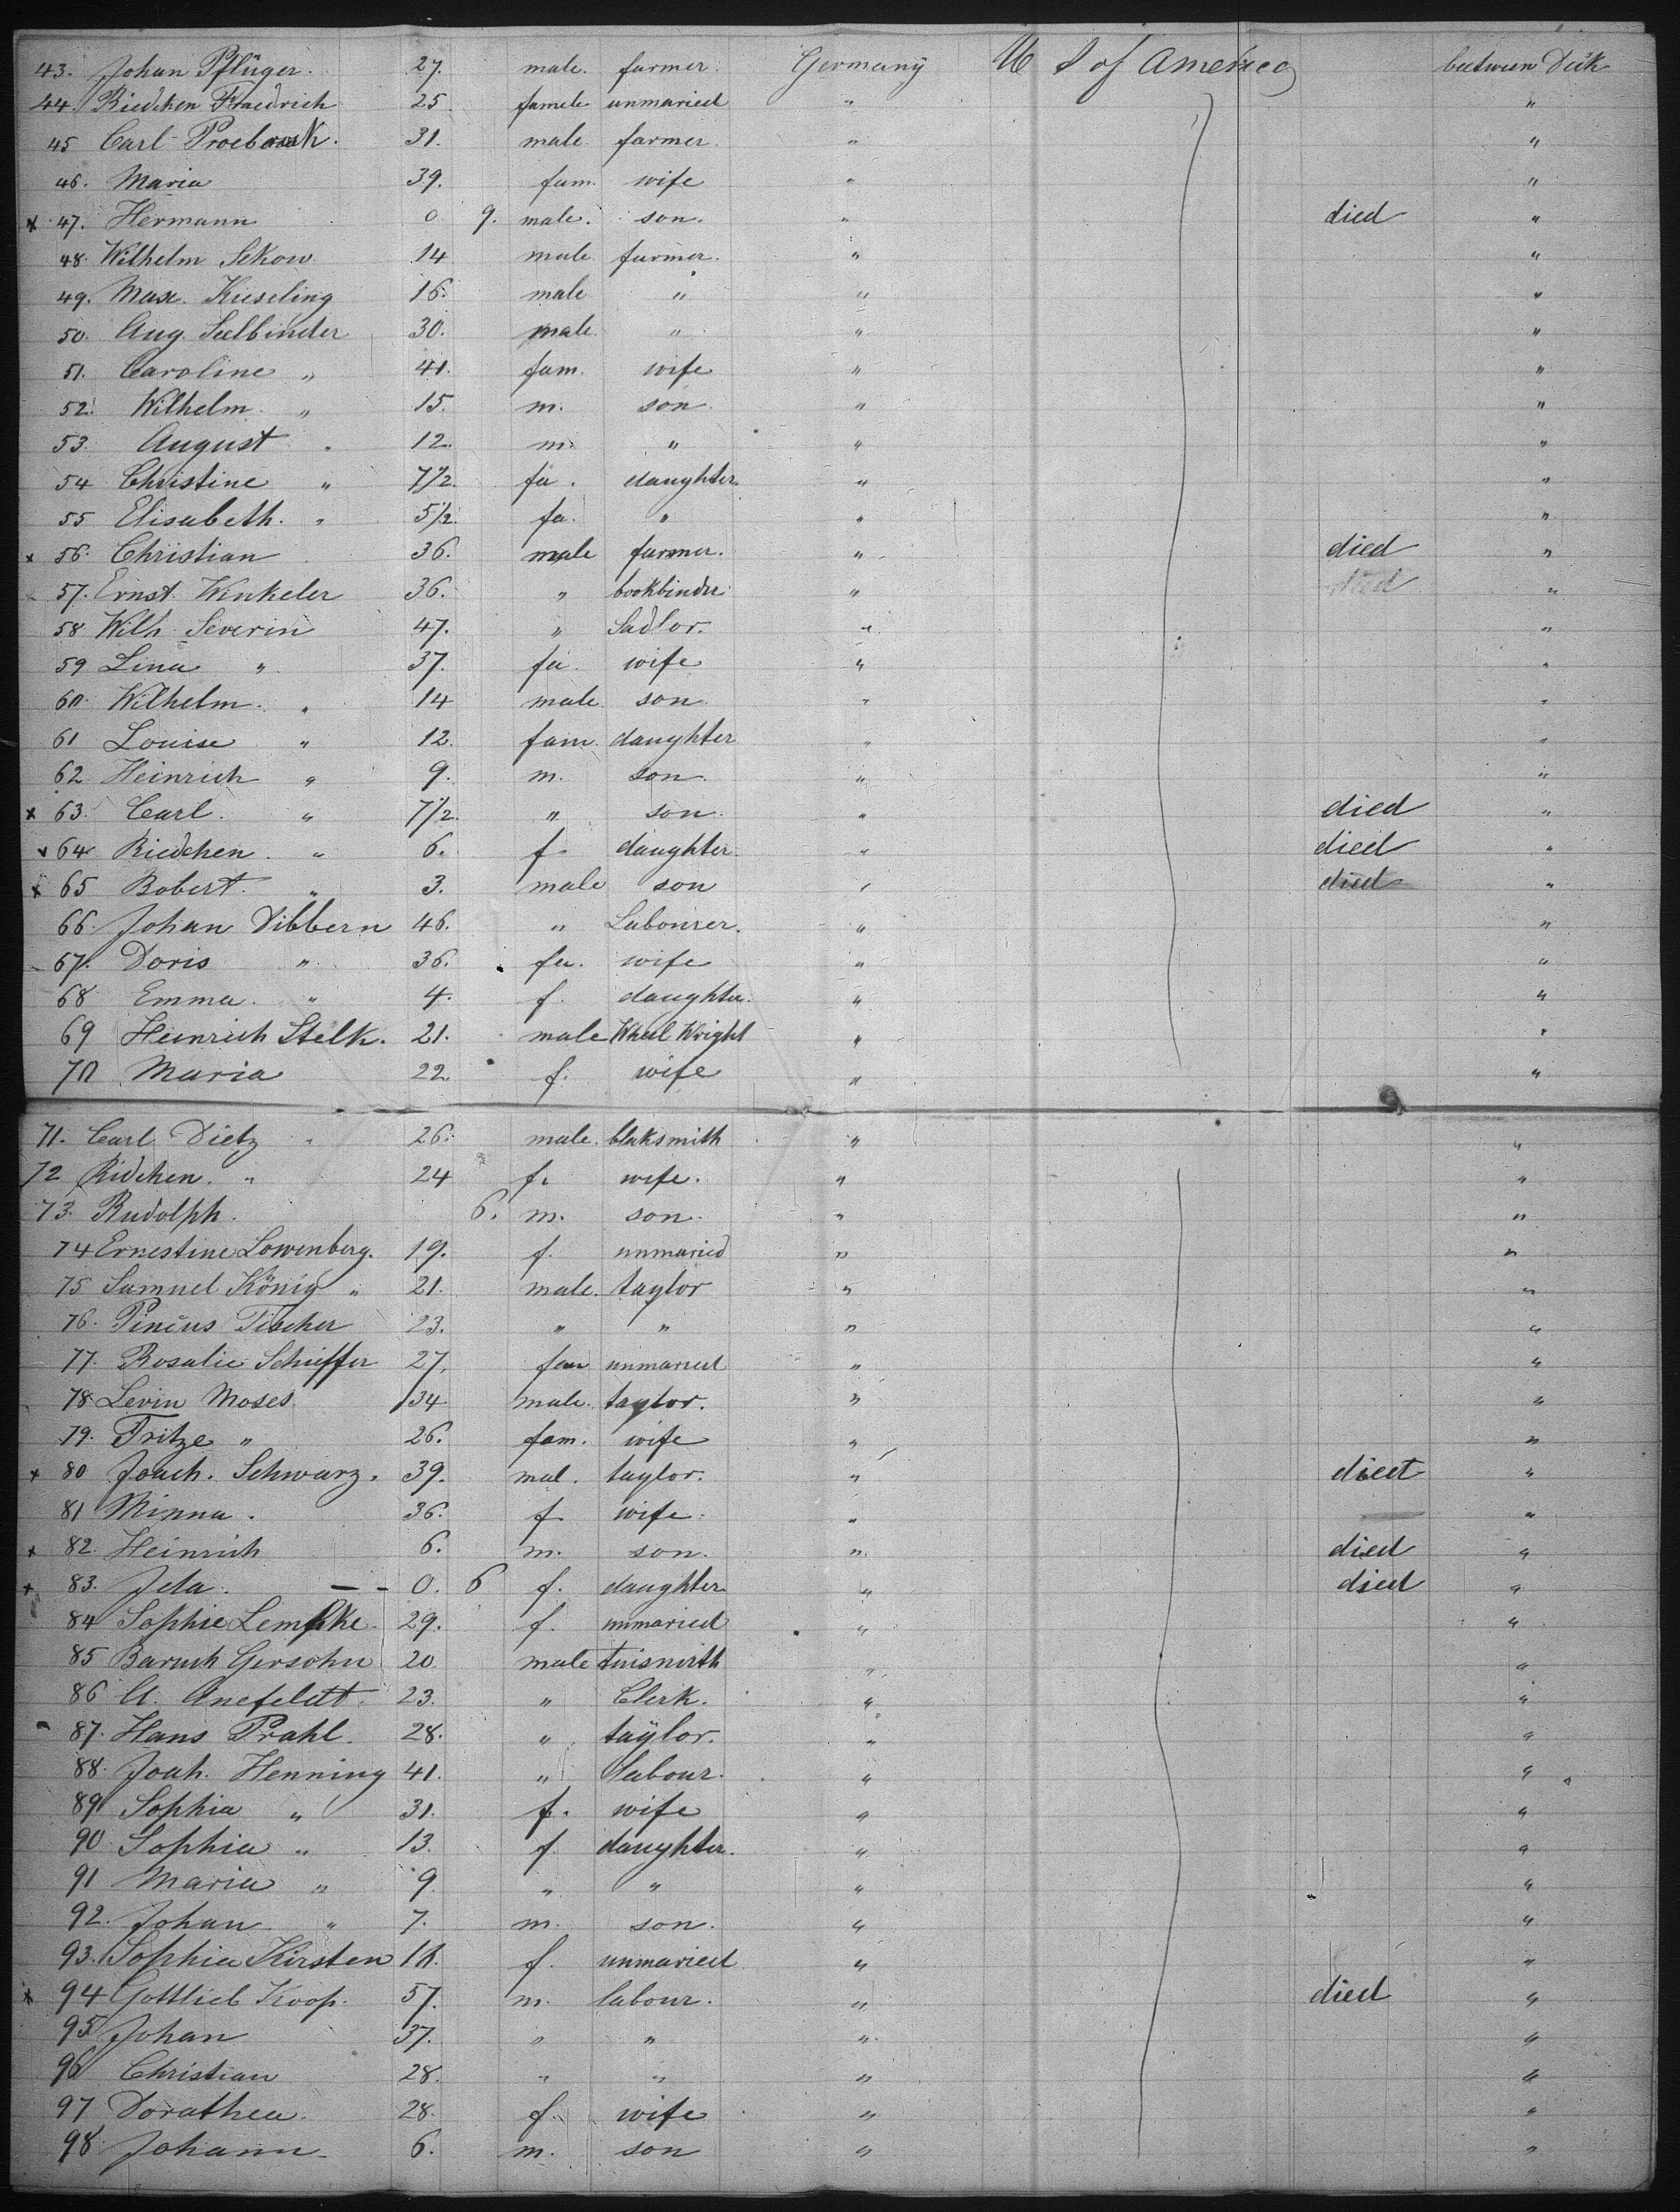 43. Johan Pflüger. 27. male. farmer. Germany U S of America between Deck
44. Riedchen Friedrich 25. famele unmaried " "
45 Carl 31. male farmer. " "
46. Maria 39. fam. wife " "
x 47. Hermann 0 9. male. son. " died "
48. Wilhelm Sekow. 14 male farmer. " "
49. Max. Kieseling 16. male " " "
50. Aug. Seelbinder 30. male. " " "
51. Caroline " 41. fam. wife " "
52. Wilhelm. " 15. m. son. " "
53. August " 12. m. " " "
54 Christine " 7 1/2 fa. daughter. " "
55 Elisabeth. " 5 1/2. fa. " " "
x 56. Christian 36. male farmer. " died "
57. Ernst. Winkeler 36. " bookbinder " died "
58 Wilh. Severin 47. " Sadlor. " "
59 Lina " 37. fa. wife " "
60. Wilhelm. " 14 male. son. " "
61 Louise " 12. fam. daughter " "
62 Heinrich " 9. m. son. " "
x 63. Carl. " 7 1/2. " son. " died "
x 64 Riedchen. " 6. f. daughter. " died "
x 65 Robert. " 3. male son " died "
66. Johan Dibbern 46. " Labourer. " "
67. Doris " 36. fa. wife " "
68 Emma. " 4. f. daughter. " "
69 Heinrich Stelk. 21. male Wheel Wright " "
70 Maria 22 f. wife " "
71. Carl Dietz " 26. male. blaksmith " "
72 Ridchen. " 24 f. wife. " "
73. Rudolph. 6. m. son. " "
74 Ernestine Lowenberg. 19. f. unmaried " "
75 Samuel König " 21. male. taylor " "
76. Pincus Tischer 23. " " " "
77. Rosalie Schieffer 27. fam unmaried " "
78. Levin Moses 34 male. taylor. " "
79. Fritze " 26. fam. wife " "
x 80 Joach. Schwarz. 39. mal. taylor. " died "
81 Minna. 36. f wife. " "
x 82. Heinrich 6. m. son. " died "
x 83. Ida. — - 0. 6 f. daughter " died "
84 Sophie Lempke. 29. f. unmaried " "
85 Baruch Gersohn 20 male tinsmith " "
86 A. Anefeldt. 23. " Clerk. " "
87. Hans Prahl. 28. " taylor. " "
88. Joah. Henning 41. " labour. " "
89 Sophia " 31. f. wife " "
90 Sophia " 13. f daughter. " "
91 Maria " 9. " " " "
92. Johan " 7. m. son. " "
93. Sophia Kirsten f. unmaried " "
x 94 Gottlieb Koop. 57. m. labour. " died "
95 Johan 37. " " " "
96 Christian 28. " " " "
97 Dorathea. 28. f. wife " "
98 Johann 6. m. son " "